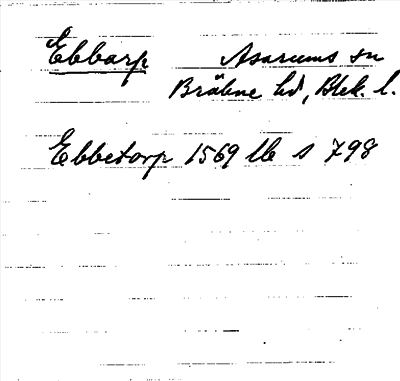 Ebbarp Asarums sn
Bräkne hd, Blek. l.
Ebbetorp 1569 lb s 798